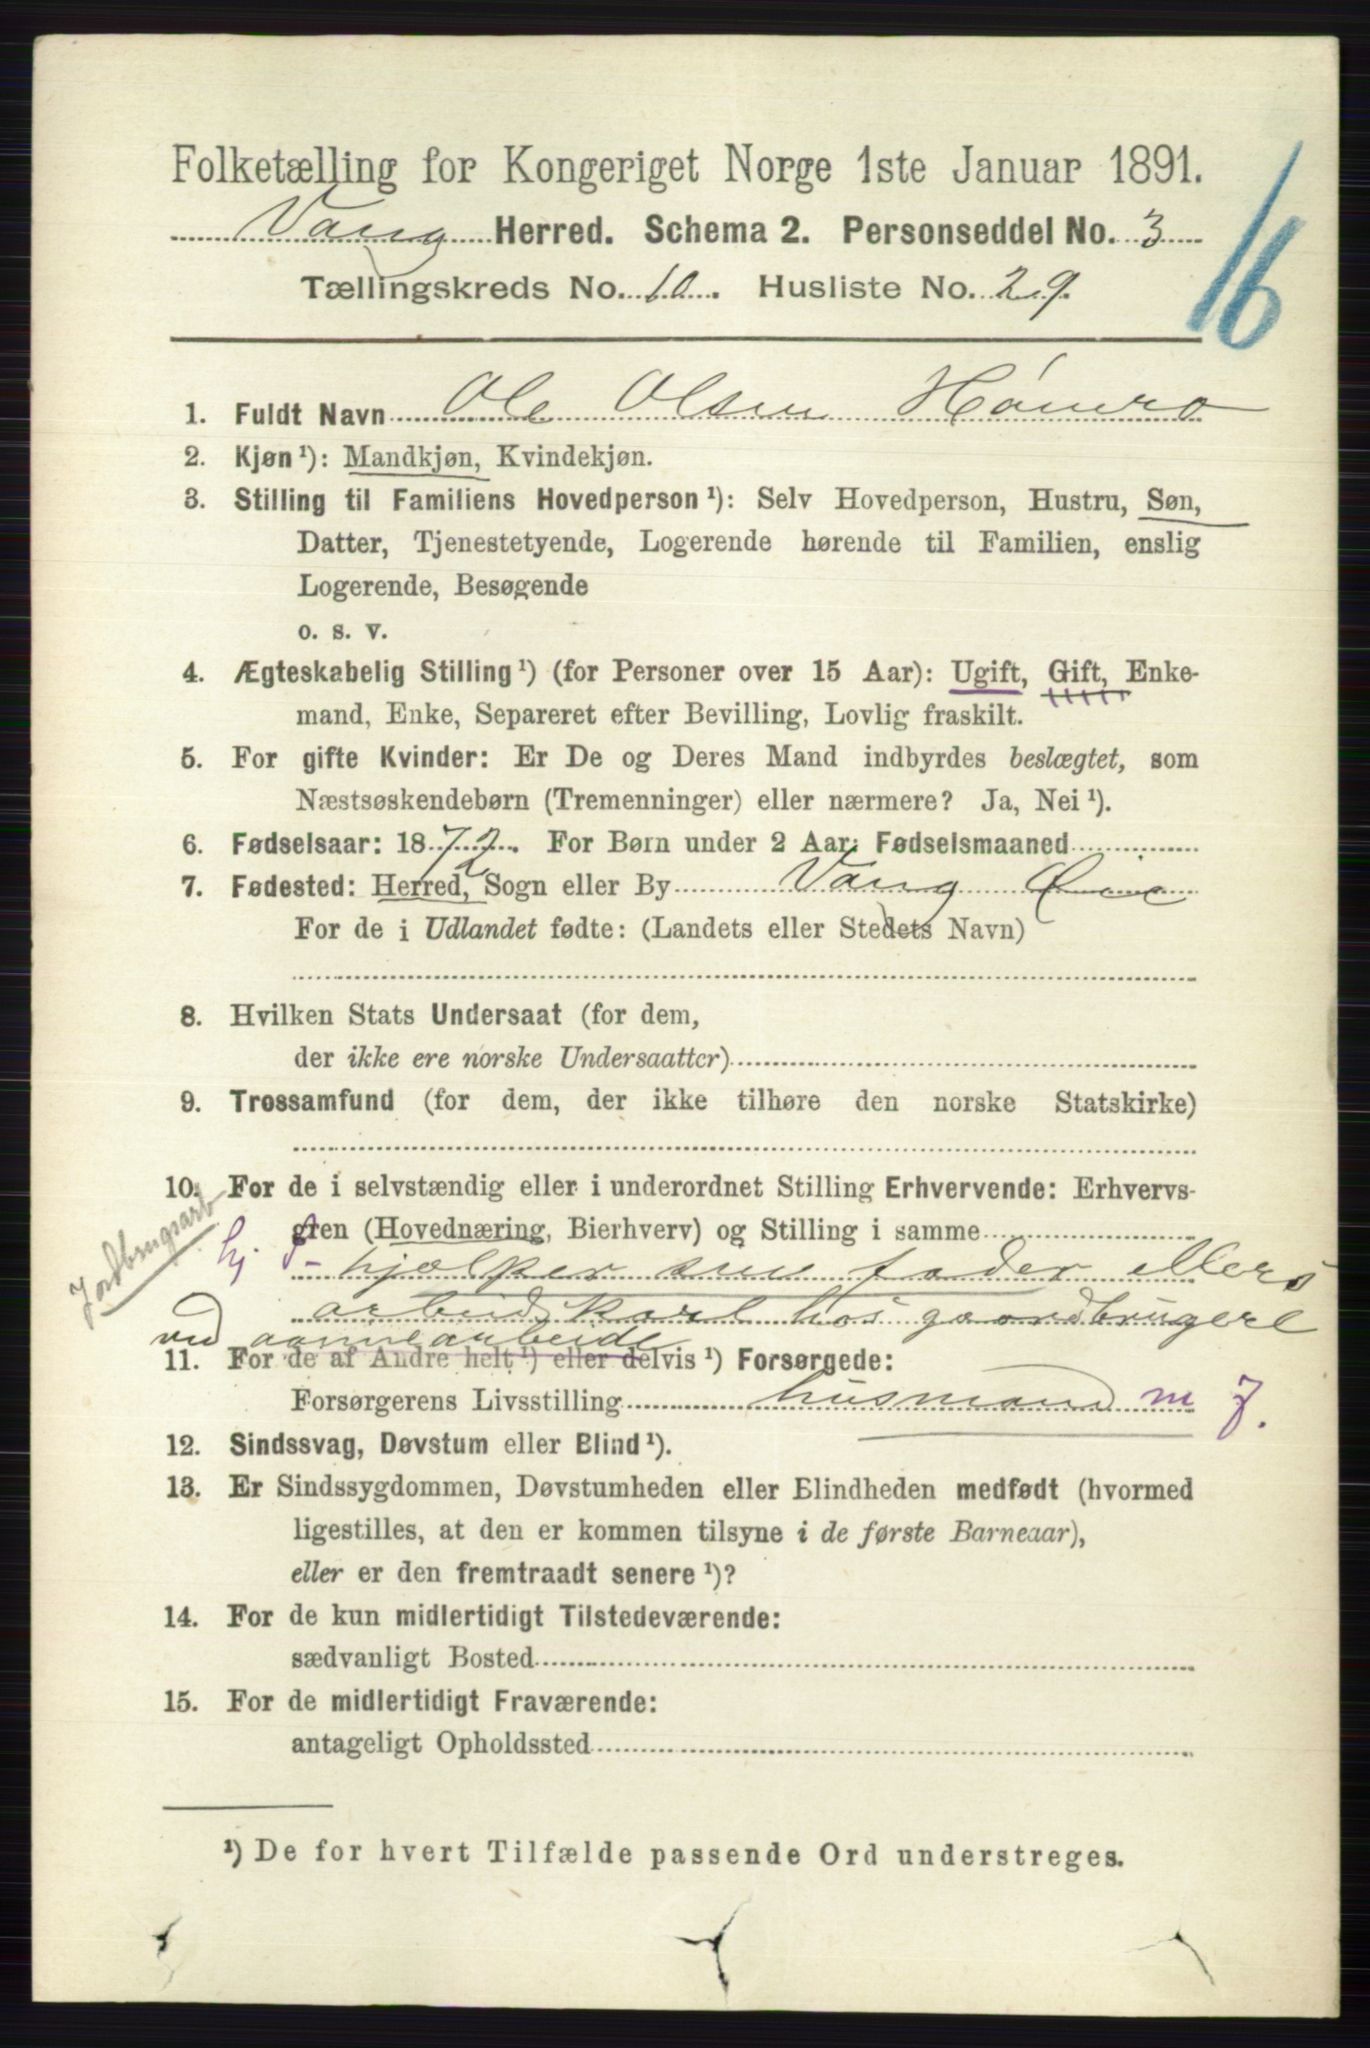 Folketælling for Kongeriget Norge 1ste Januar 1891.
16
Vang Herred. Schema 2. Personseddel No. 3
Tællingskreds No. 10. Husliste No. 29
1. Fuldt Navn Ole Olsen
2. Kjøn ¹): Mandkjøn, Kvindekjøn.
3. Stilling til Familiens Hovedperson ¹): Selv Hovedperson, Hustru, Søn,
Datter, Tjenestetyende, Logerende hørende til Familien, enslig
Logerende, Besøgende
o. s. v.
4. Ægteskabelig Stilling ¹) (for Personer over 15 Aar): Ugift, Gift, Enke-
mand, Enke, Separeret efter Bevilling, Lovlig fraskilt.
5. For gifte Kvinder: Er De og Deres Mand indbyrdes beslægtet, som
Næstsøskendebørn (Tremenninger) eller nærmere? Ja, Nei ¹).
6. Fødselsaar: 1872. For Børn under 2 Aar: Fødselsmaaned
7. Fødested: Herred, Sogn eller By Vang
For de i Udlandet fødte: (Landets eller Stedets Navn)
8. Hvilken Stats Undersaat (for dem,
der ikke ere norske Undersaatter)
9. Trossamfund (for dem, der ikke tilhøre den norske Statskirke)
10. For de i selvstændig eller i underordnet Stilling Erhvervende: Erhvervs-
gren (Hovednæring, Bierhverv) og Stilling i samme
Jordbrugsarb
hj. F- hjælper sin fader ellers
arbeidskarl hos gaardbrugere
ved aarne arbeide
11. For de af Andre helt ¹) eller delvis ¹) Forsørgede:
Forsørgerens Livsstilling husmand m J.
12. Sindssvag, Døvstum eller Blind ¹).
13. Er Sindssygdommen, Døvstumheden eller Blindheden medfødt (hvormed
ligestilles, at den er kommen tilsyne i de første Barneaar),
eller er den fremtraadt senere ¹)?
14. For de kun midlertidigt Tilstedeværende:
sædvanligt Bosted
15. For de midlertidigt Fraværende:
antageligt Opholdssted
¹) De for hvert Tilfælde passende Ord understreges.